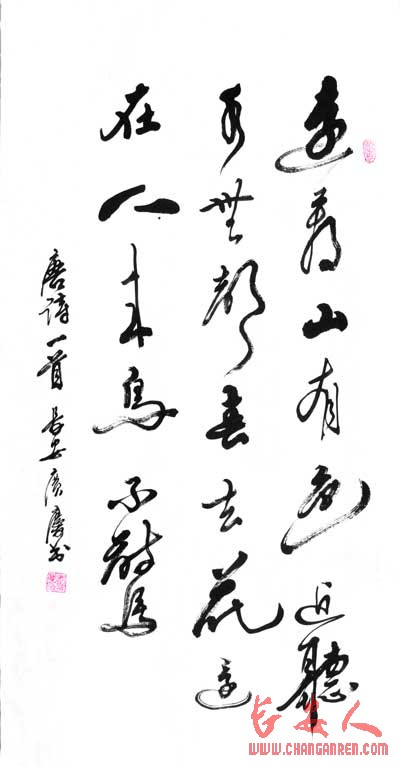 遠看山有色近聽
水無聲春去花還
在人來鳥不驚
唐詩一首 長安廣慶書
长安人
WWW.CHANGANREN.COM